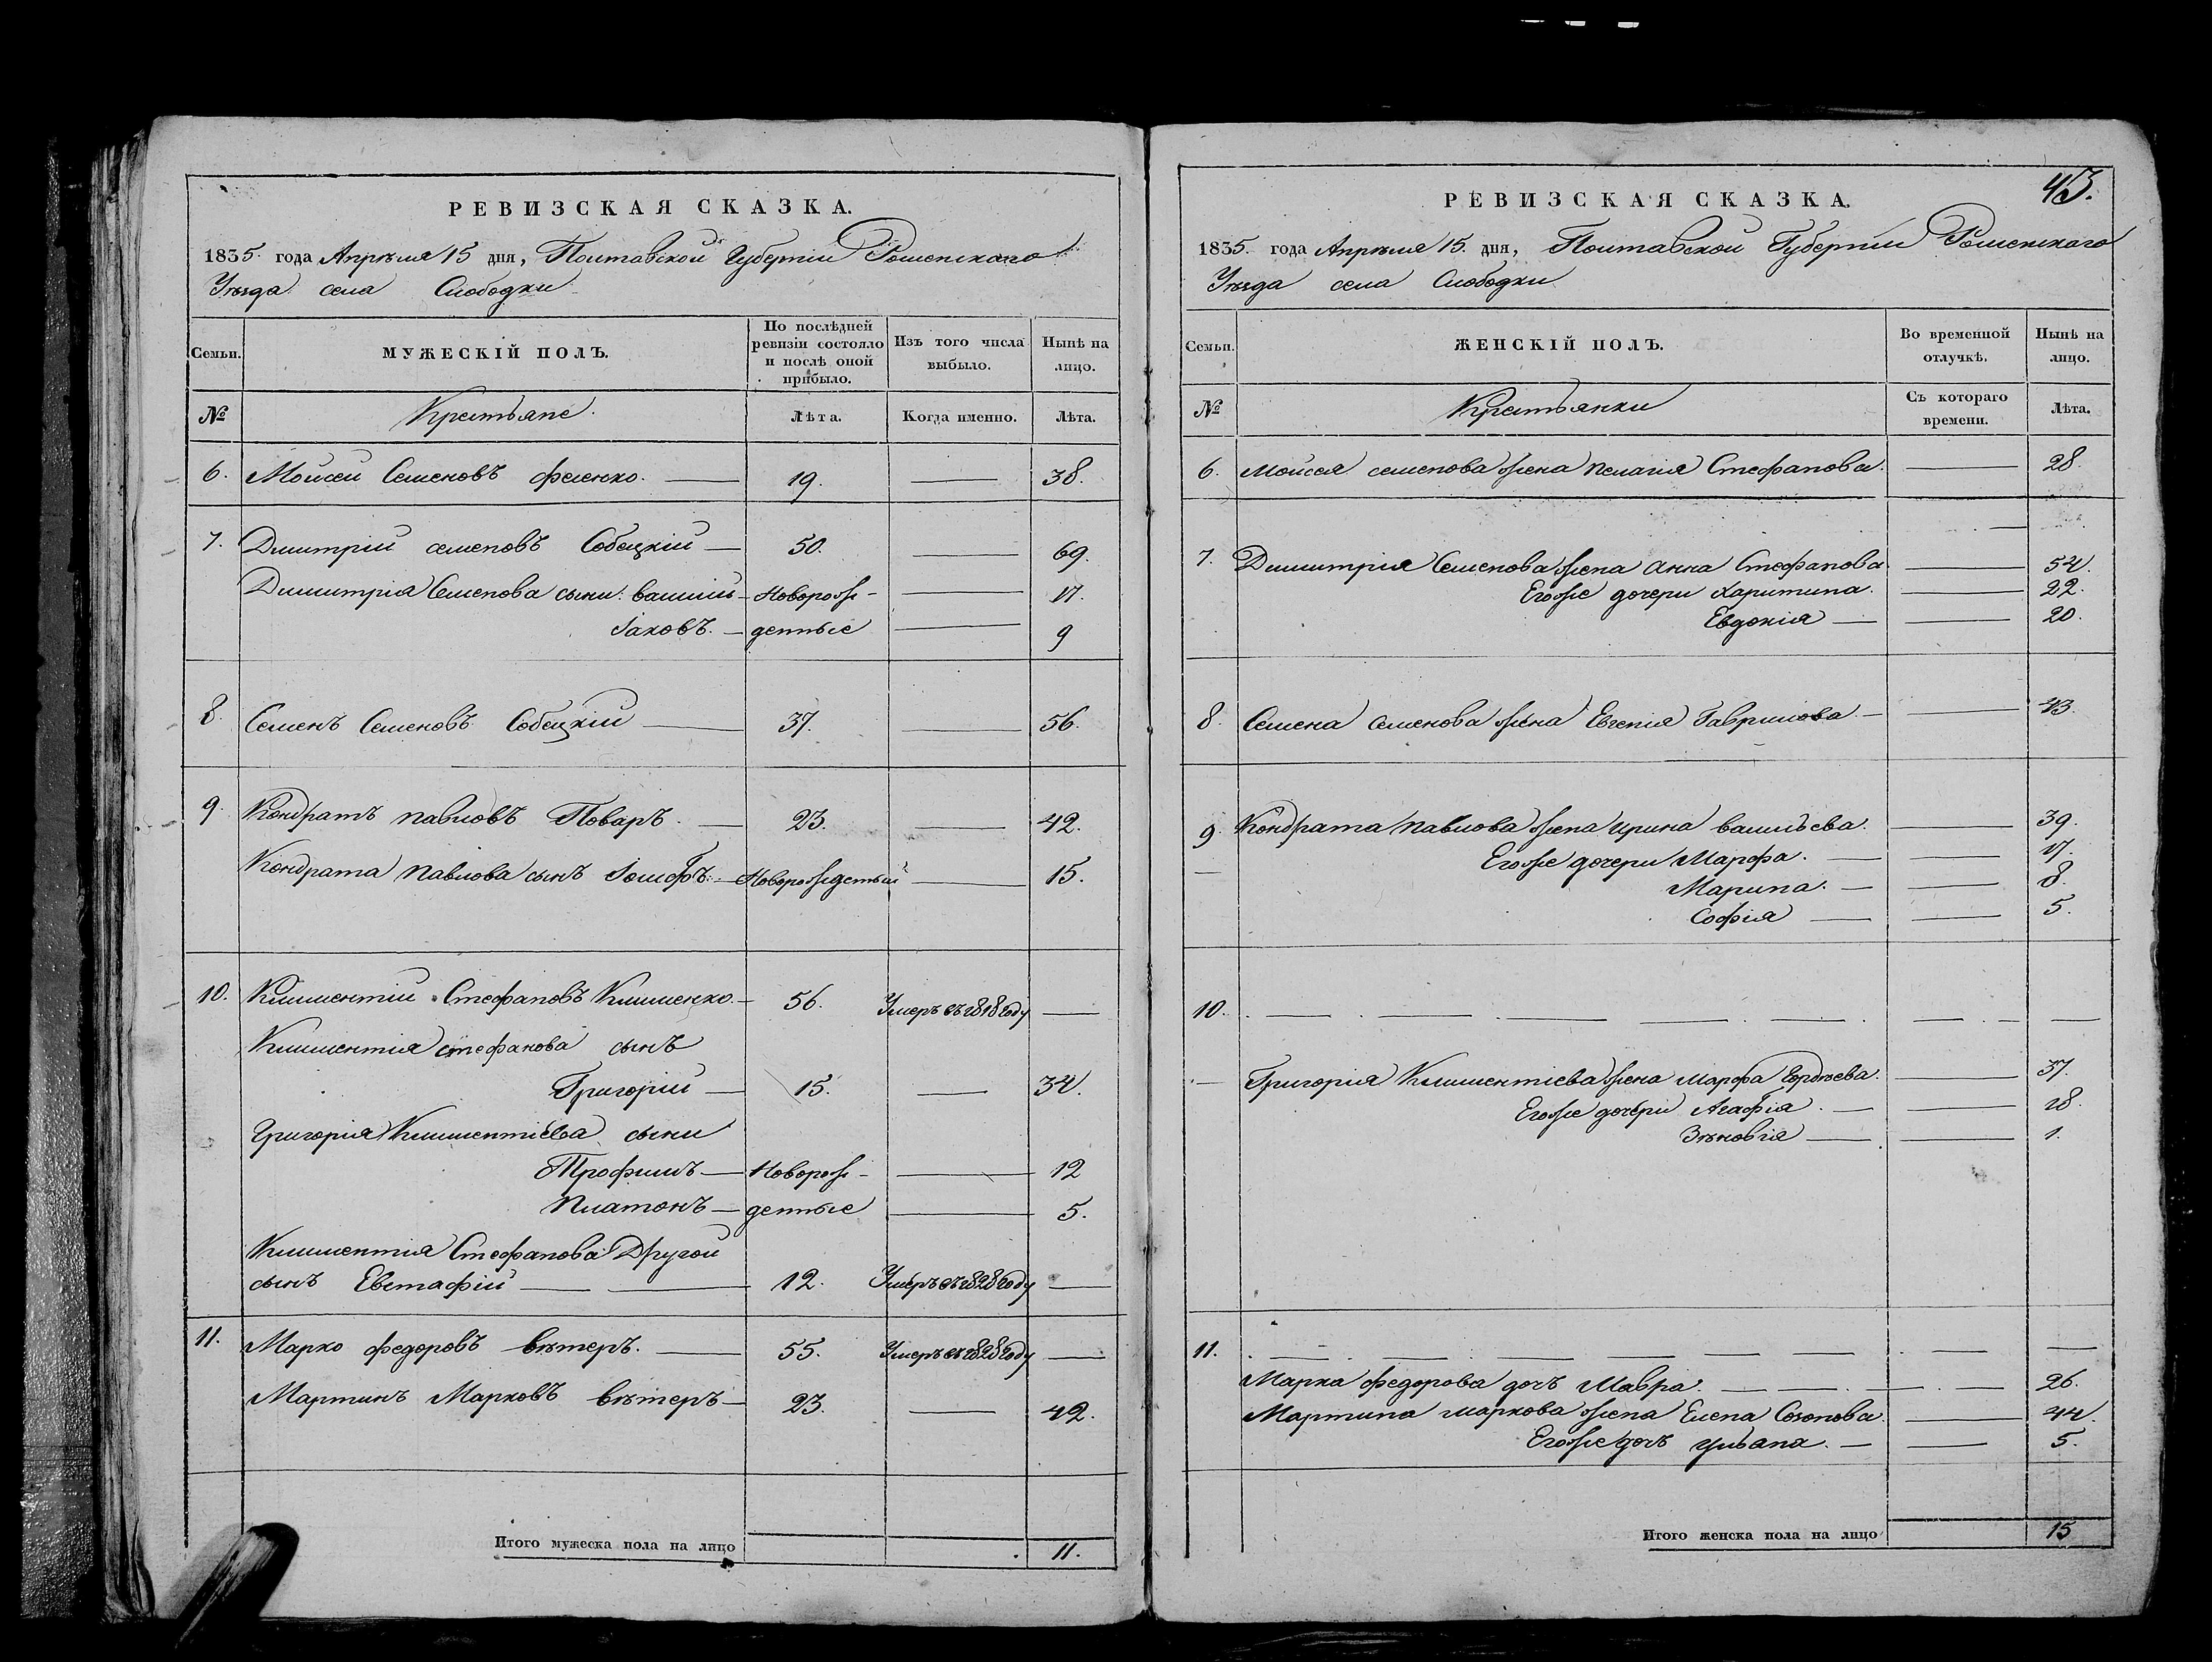 РЕВИЗСКАЯ СКАЗКА.
1835 года Апрѣля 15 дня, Полтавской Губерніи Роменскаго
Уѣзда села Слободки
Семьи. МУЖЕСКІЙ ПОЛЪ. По послѣдней ревизіи состояло и послѣ оной прибыло. Изъ того числа выбыло. Нынѣ на лицо.
№ Крестьяне. Лѣта. Когда именно. Лѣта.
6. Моисей Семеновъ феленко. 19. 38.
7. Димитрій семеновъ Собецкій 50. 69.
Димитрія Семенова сыни: василь Новорож- 17.
Іаковъ. денные 9
8. Семенъ Семеновъ Собецкій 37. 56.
9. Кондратъ павловъ Поваръ. 23. 42.
Кондрата павлова сынъ Іосифъ. Новорожденый 15.
10. Климентій Стефановъ Клименко. 56. Умеръ въ 1818 году
Климентія стефанова сынъ
Григорій 15. 34.
Григорія Климентіева сыни
Трофимъ Новорож- 12
Платонъ денные 5.
Климентія Стефанова Другой
сынъ Евстафій 12. Умеръ въ 1828 году
11. Марко федоровъ вѣтеръ. 55. Умеръ въ 1828 году
Мартинъ Марковъ вѣтеръ 23. 42.
Итого мужеска пола на лицо 11.
43.
РЕВИЗСКАЯ СКАЗКА.
1835. года Апрѣля 15. дня, Полтавской Губерніи Роменскаго
Уѣзда села Слободки
Семьи. ЖЕНСКІЙ ПОЛЪ. Во временной отлучкѣ. Нынѣ на лицо.
№ Крестьянки Съ котораго времени. Лѣта.
6. Моисея семенова жена пелагія Стефанова. 28.
7. Димитрія Семенова жена анна Стефанова 54.
Егоже дочери харитина. 22.
Евдокія 20.
8. Семена семенова жена Евгенія Гаврилова. 43.
9. Кондрата павлова жена ирина васильева. 39.
Егоже дочери Марфа. 17.
Марина. 8.
Софія 5.
10.
Григорія Климентіева жена марфа Гордѣева. 37.
Егоже дочери Агафія. 18.
Зѣновія 1.
11.
Марка федорова дочь Мавра. 26.
Мартина маркова жена Елена Созонова. 44.
Егоже дочь уліана. 5.
Итого женска пола на лицо 15